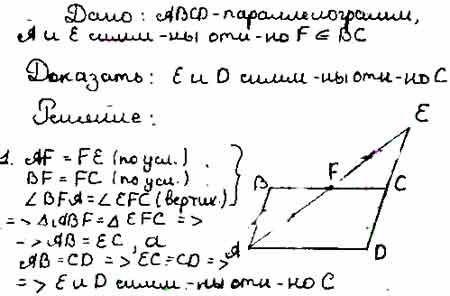 Дано: ABCD-параллелограмм,
A и E симм-ны отн-но F ∈ BC
Доказать: E и D симм-ны отн-но C
Решение:
1. AF = FE (по усл.)
BF = FC (по усл.)
∠BFA = ∠EFC (вертик.)
=> △ABF = △EFC =>
-> AB = EC, а
AB = CD => EC = CD =>
=> E и D симм-ны отн-но C
E
B
F
C
A
D